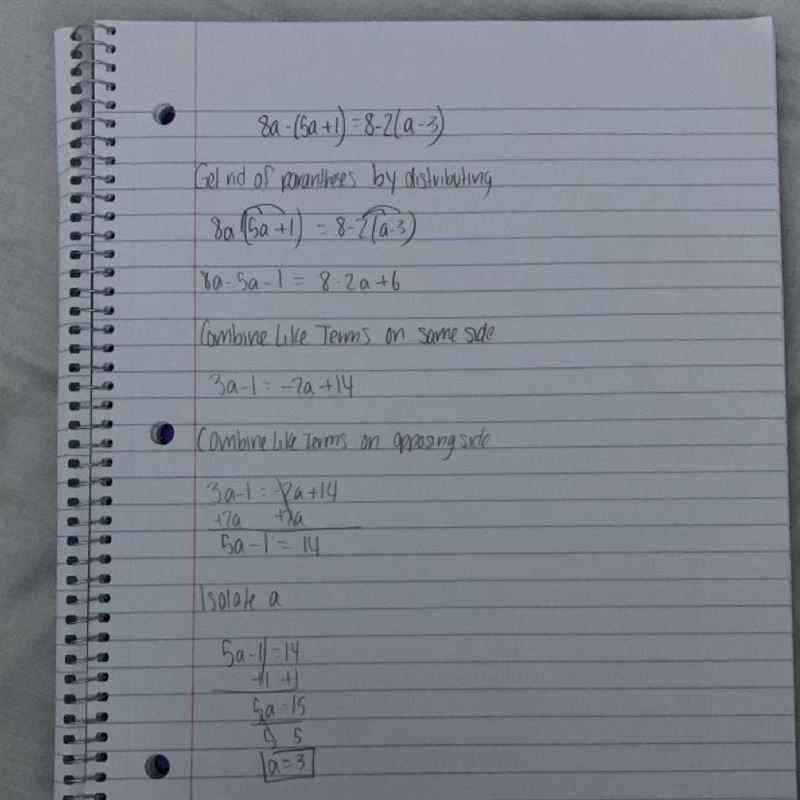 8a-(5a+1)=8-2(a-3)
Get rid of parantheses by distributing
8a(5a+1) = 8-2(a-3)
8a-5a-1 = 8-2a+6
Combine Like Terms on same side
3a-1 = -2a+14
Combine Like Terms on opposing side
3a-1 = -2a+14
+2a +2a
5a-1 = 14
Isolate a
5a-1 = 14
+1 +1
5a = 15
5 5
a = 3